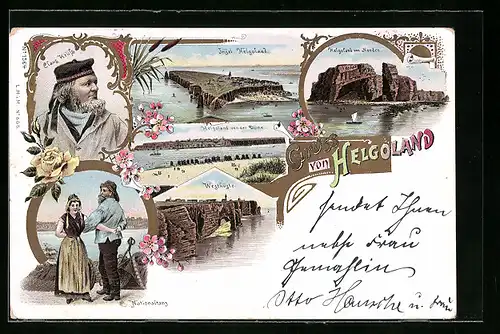 Claus Küth
Insel Helgoland.
Helgoland von Norden.
Helgoland von der Düne.
Gruss
von HELGOLAND
Westküste
Nationaltanz
sendet Ihnen
nebst Frau
Gemahlin
Otto u. Frau